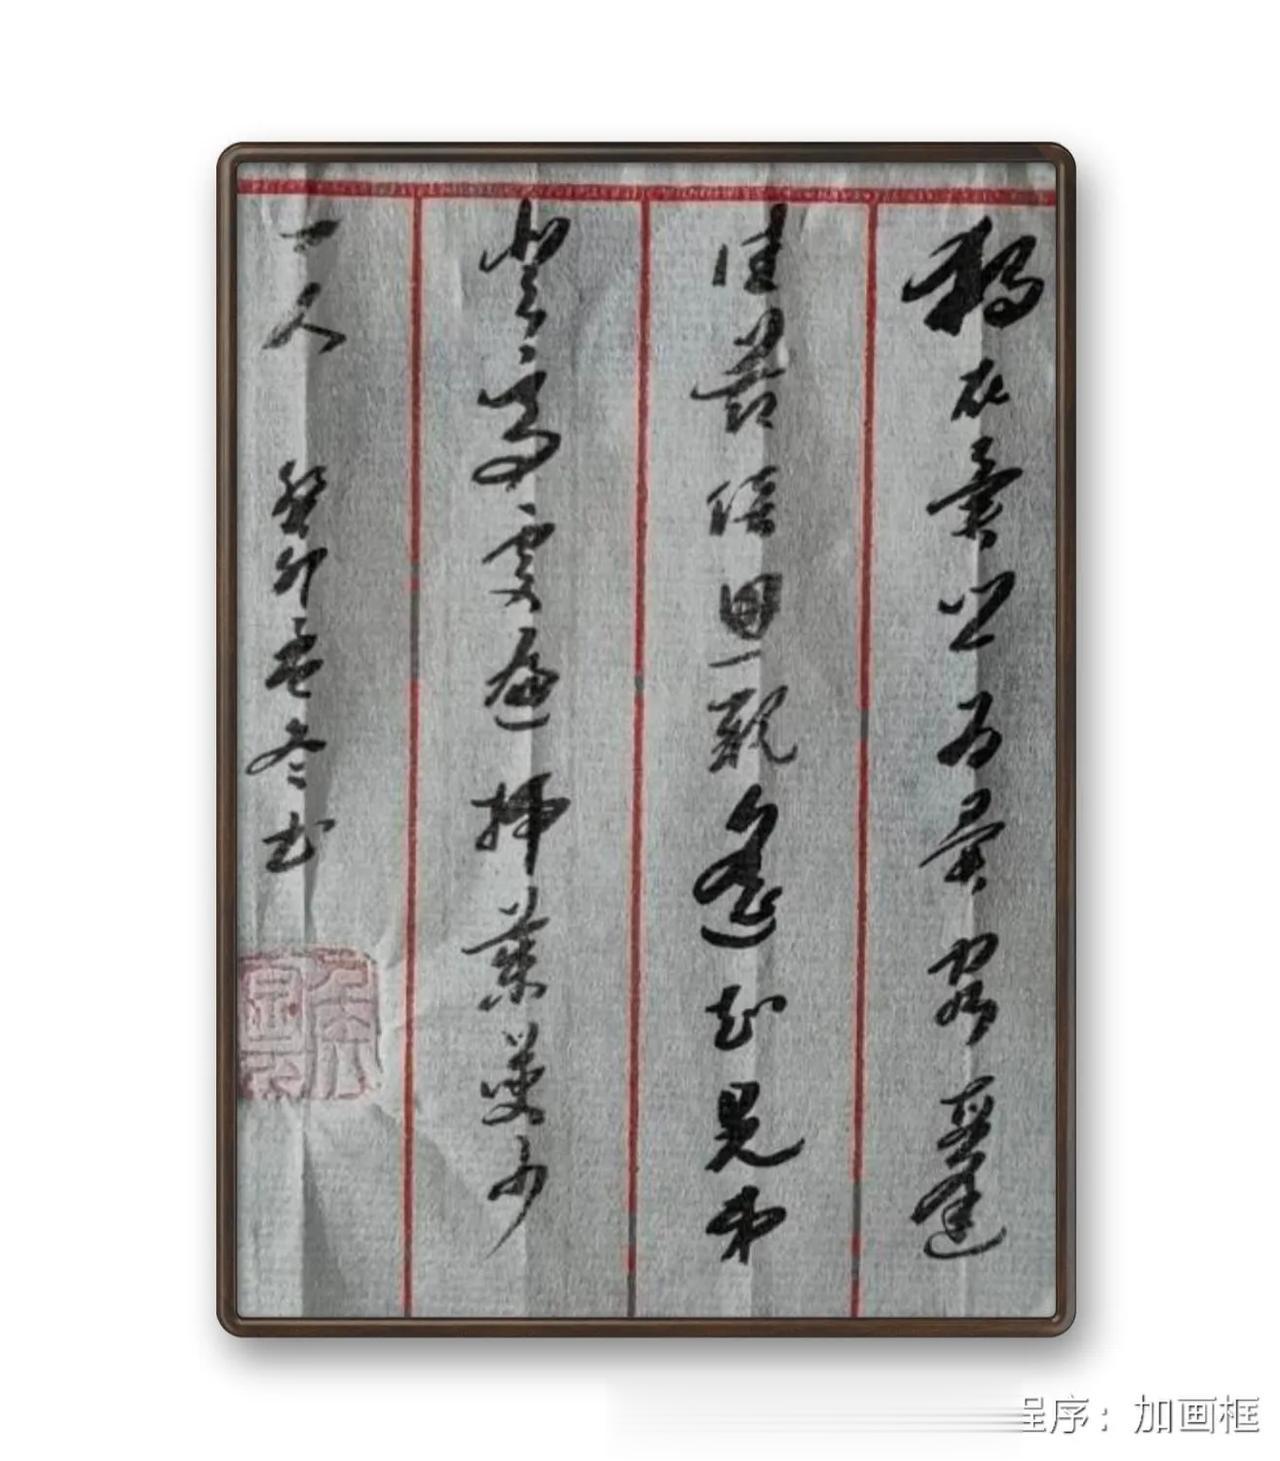 獨在異鄉為異客每逢
佳節倍思親遙知兄弟
登高處遍插茱萸少
一人 癸卯孟冬書
程序：加画框